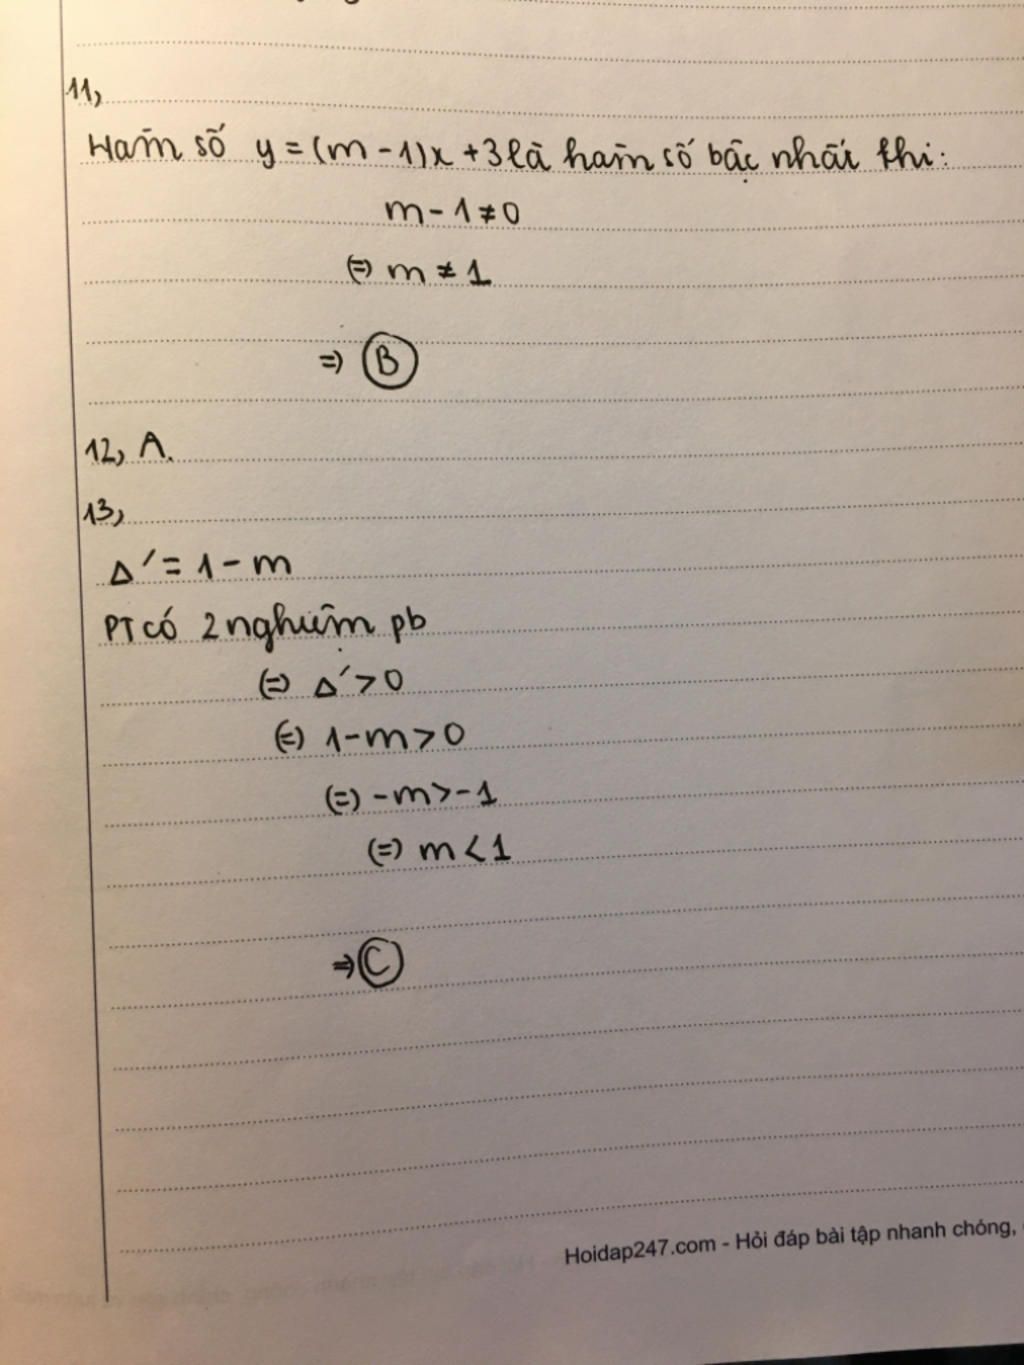 11,
Hàm số y = (m - 1)x + 3 là hàm số bậc nhất khi:
m - 1 ≠ 0
(=) m ≠ 1
=) B
12, A.
13,
Δ' = 1 - m
PT có 2 nghiệm pb
(=) Δ' > 0
(=) 1 - m > 0
(=) - m > - 1
(=) m < 1
=) C
Hoidap247.com - Hỏi đáp bài tập nhanh chóng,